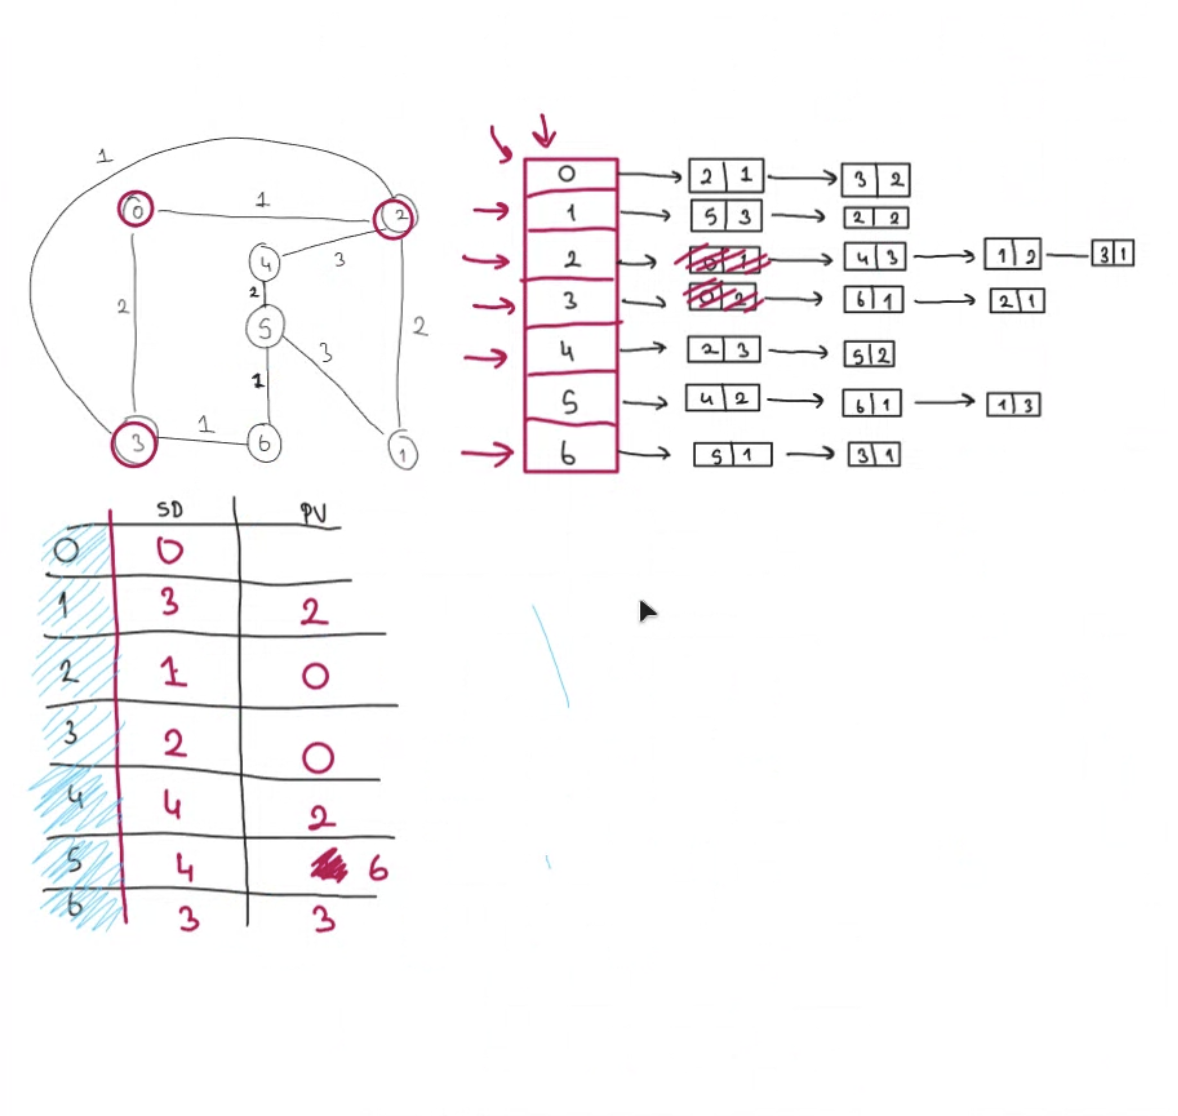 1
0 1 2
4 3
2 2
2 5
3
1
3 1 6 1
0 2 1 3 2
1 5 3 2 2
2 0 1 4 3 1 2 3 1
3 0 2 6 1 2 1
4 2 3 5 2
5 4 2 6 1 1 3
6 5 1 3 1
SD PV
0 0
1 3 2
2 1 0
3 2 0
4 4 2
5 4 6
6 3 3